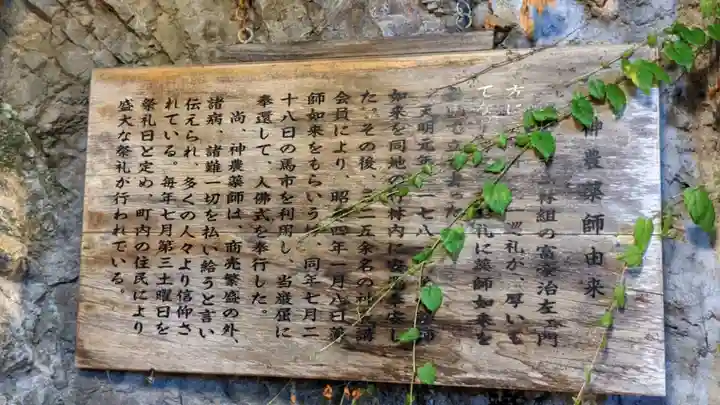 神農薬師由来
林組の富豪治左ヱ門
巡礼が、厚いも
方に
てな
礼に薬師如来を
立
天明元年 一七八
如来を同地の竹林内に安
た。その後、二二五余名の神農講
会員により、昭 四年一月八日薬
師如来をもらいう 、同年七月二
十八日の馬市を利用し、当巌屈に
奉還して、入佛式を奉行した。
尚、神農薬師は、商売繁盛の外、
諸病、諸難一切を払い給うと言い
伝えられ、多くの人々より信仰さ
れている。毎年七月第三土曜日を
祭礼日と定め、町内の住民により
盛大な祭礼が行われている。